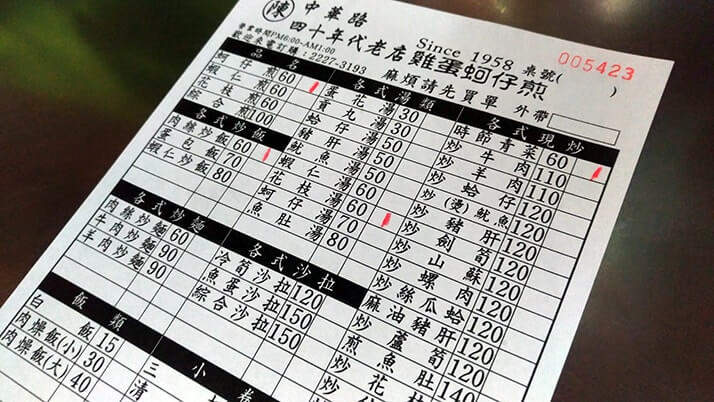 陳 中華路
四十年代老店
Since 1958
雞蛋蚵仔煎
桌號( )
005423
營業時間PM6:00-AM1:00
歡迎來電訂購：2227-3193
麻煩請先買單 外帶
品名
蚵仔煎 60
蝦仁煎 60
花枝煎 60
綜合煎 100
各式炒飯
肉絲炒飯 60
蛋包飯 70
蝦仁炒飯 80
各式炒麵
肉絲炒麵 60
牛肉炒麵 90
羊肉炒麵 90
飯類
白飯 15
肉燥飯(小) 30
肉燥飯(大) 40
各式湯類
蛋花湯 30
貢丸湯 30
蛤仔湯 50
豬肝湯 50
魷魚湯 50
蝦仁湯 60
花枝湯 60
蚵仔湯 70
魚肚湯 80
各式沙拉
冷筍沙拉 120
魚蛋沙拉 150
綜合沙拉 150
小卷
三
清
各式現炒
時節青菜 60
炒牛肉 110
炒羊肉 110
炒蛤仔 120
炒(燙)魷魚 120
炒豬肝 120
炒劍筍 120
炒山蘇 120
炒螺肉 120
炒絲瓜蛤 120
麻油豬肝 120
炒蘆筍 120
煎魚肚 140
炒花枝
炒